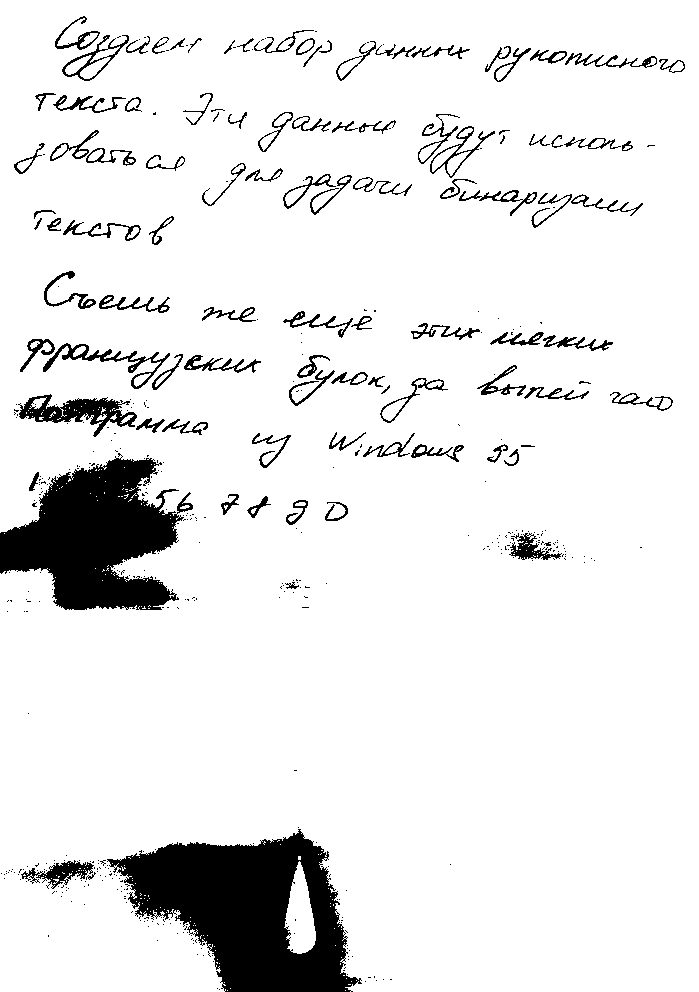 Создаем набор данных рукописного
текста. Эти данные будут исполь-
зоваться для задачи бинаризации
текстов
Съешь же ещё этих мягких
французских булок, да выпей чаю
Панграмма из Windows 95
1 5 6 7 8 9 0